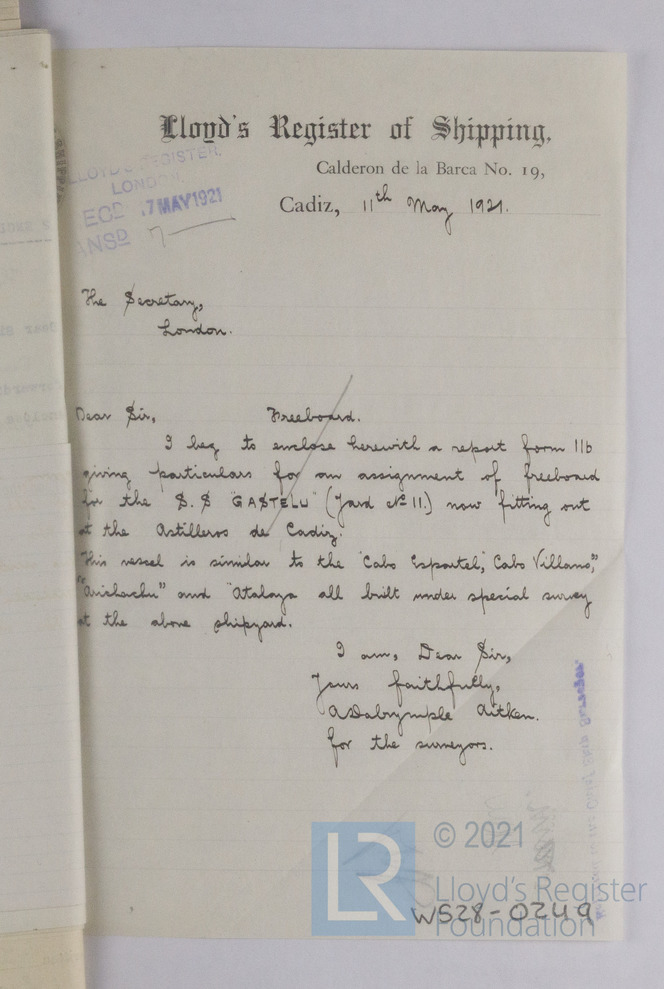 Lloyd's Register of Shipping,
Calderon de la Barca No. 19,
Cadiz, 11th May 1921.
LLOYD'S REGISTER.
LONDON.
RECD 17 MAY 1921
ANSD 7
The Secretary,
London.
Dear Sir, Freeboard.
I beg to enclose herewith a report form 11b
giving particulars for an assignment of freeboard
for the S.S "GASTELU" (Yard No 11.) now fitting out
at the Astilleros de Cadiz.
This vessel is similar to the "Cabo Espartel," Cabo Villano,"
"Arichachu" and "Atalaya all built under special survey
at the above shipyard.
I am, Dear Sir,
Yours faithfully,
ADalrymple Aitken.
for the surveyors.
© 2021
LR
Lloyd's Register
Foundation
WS28-0249